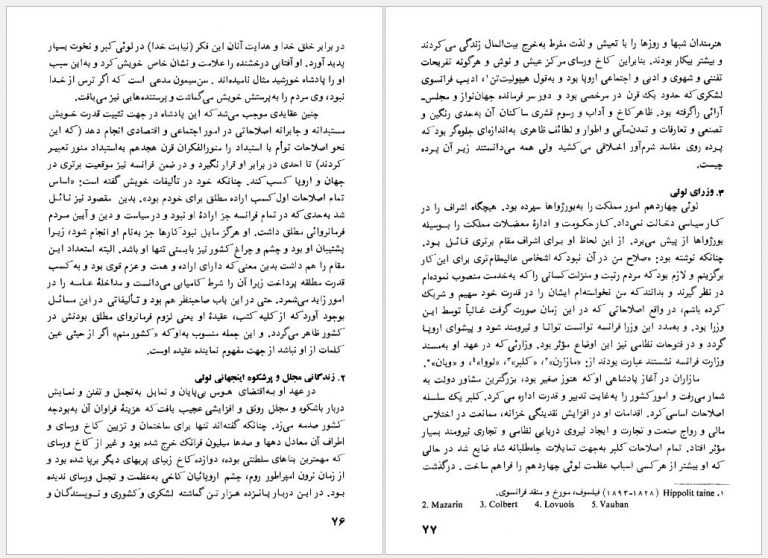 در برابر خلق خدا و هدایت آنان این فکر (نیابت خدا) در لوئی کبر و نخوت بسیار
پدید آورد. او آفتابی درخشنده را علامت و نشان خاص خویش کرد و به‌این سبب
او را پادشاه خورشید مثال نامیده‌اند. سن‌سیمون مدعی است که اگر ترس از خدا
نبود، وی مردم را به‌پرستش خویش می‌گماشت و پرستنده‌هایی نیز می‌یافت.
چنین عقایدی موجب می‌شد که این پادشاه در جهت تثبیت قدرت خویش
مستبدانه و جابرانه اصلاحاتی در امور اجتماعی و اقتصادی انجام دهد (که این
نحو اصلاحات توأم با استبداد را منورالفکران قرن هجدهم به‌استبداد منور تعبیر
کردند) تا احدی در برابر او قرار نگیرد و در ضمن فرانسه نیز موقعیت برتری در
جهان و اروپا کسب کند. چنانکه خود در تألیفات خویش گفته است: «اساس
تمام اصلاحات اول کسب اراده مطلق برای خودم بود». بدین مقصود نیز نائل
شد به‌حدی‌که در تمام فرانسه جز ارادهٔ او نبود و در سیاست و دین و آیین مردم
فرمانروائی مطلق داشت. او هرگز مایل نبود کارها جز به‌نام او انجام شود، زیرا
پشتیبان او بود و چشم و چراغ کشور نیز بایستی تنها او باشد. البته استعداد این
مقام را هم داشت بدین معنی‌که دارای اراده و همت و عزم قوی بود و به‌کسب
قدرت مطلقه پرداخت زیرا آن را شرط کامیابی می‌دانست و مداخلهٔ عامه را در
امور زاید می‌شمرد. حتی در این باب صاحبنظر هم بود و تألیفاتی در این مسائل
بوجود آورد‌که از کلیه کتب، عقیدهٔ او یعنی لزوم فرمانروای مطلق بودنش در
کشور ظاهر می‌گردد. و این جمله منسوب به‌او‌که «کشور منم» اگر از حیثی عین
کلمات از او نباشد از جهت مفهوم نماینده عقیده اوست.
۲. زندگانی مجلل و پرشکوه اینجهانی لوئی
در عهد او به‌اقتضای هوس بی‌پایان و تمایل به‌تجمل و تفنن و نمایش
دربار باشکوه و مجلل رونق و افزایشی عجیب یافت که هزینهٔ فراوان آن به‌بودجه
کشور صدمه می‌زد. چنانکه گفته‌اند تنها برای ساختمان و تزیین کاخ ورسای و
اطراف آن معادل دهها و صدها میلیون فرانک خرج شده بود و غیر از کاخ ورسای
که مهمترین بناهای سلطنتی بوده، دوازده کاخ زیبای پربهای دیگر برپا شده بود و
از زمان نرون امپراطور روم، چشم اروپائیان کاخی به‌عظمت و تجمل ورسای ندیده
بود. در این دربار پانزده هزار تن گماشته لشکری و کشوری و نویسندگان و
۷۶
هنرمندان شبها و روزها را با تعیش و لذت مفرط به‌خرج بیت‌المال زندگی می‌کردند
و بیشتر بیکار بودند. بنابراین کاخ ورسای مرکز عیش و نوش و هرگونه تفریحات
تفننی و شهوی و ادبی و اجتماعی اروپا بود و به‌قول هیپولیت‌تن۱، ادیب فرانسوی
لشکری که حدود یک قرن در مرخصی بود و دور سر فرمانده جهان‌نواز و مجلس-
آرائی راگرفته بود. ظاهر کاخ و آداب و رسوم قشری ساکنان آن به‌حدی رنگین و
تصنعی و تعارفات و تمدن‌مآبی و اطوار و لطائف ظاهری به‌اندازه‌ای جلوه‌گر بود که
پرده روی مفاسد شرم‌آور اخلاقی می‌کشید ولی همه می‌دانستند زیر آن پرده
چیست.
۳. وزرای لوئی
لوئی چهاردهم امور مملکت را به‌بورژواها سپرده بود. هیچگاه اشراف را در
کار سیاسی دخالت نمی‌داد. کار حکومت و ادارهٔ معضلات مملکت را بوسیله
بورژواها از پیش می‌برد. از این لحاظ او برای اشراف مقام برتری قائل بود.
چنانکه نوشته بود: «صلاح من در آن نبود که اشخاص عالیمقام‌تری برای این کار
برگزینم و لازم بود که مردم رتبت و منزلت کسانی را که به‌خدمت منصوب نموده‌ام
در نظر گیرند و بدانند که من نخواسته‌ام ایشان را در قدرت خود سهیم و شریک
کرده باشم، در واقع اصلاحاتی که در این زمان صورت گرفت غالباً توسط این
وزرا بود. و به‌مدد این وزرا فرانسه توانست توانا و نیرومند شود و پیشوای اروپا
گردد و در فتوحات نظامی نیز این اوضاع مؤثر بود. وزارئی که در عهد او به‌مسند
وزارت فرانسه نشستند عبارت بودند از: «مازارن»۲، «کلبر»۳، «لووا»۴، و «وبان»۵.
مازاران در آغاز پادشاهی او که هنوز صغیر بود، بزرگترین مشاور دولت به
شمار می‌رفت و امور کشور را به‌غایت تدبیر و قدرت اداره می‌کرد. کلبر یک سلسله
اصلاحات اساسی کرد. اقدامات او در افزایش نقدینگی خزانه، ممانعت در اختلاس
مالی و رواج صنعت و تجارت و ایجاد نیروی دریایی نظامی و تجاری نیرومند بسیار
مؤثر افتاد. تمام اصلاحات کلبر به‌جهت تمایلات جاه‌طلبانه شاه ضایع شد در حالی
که او بیشتر از هر کسی اسباب عظمت لوئی چهاردهم را فراهم ساخت. درگذشت
۱. Hippolit taine (۱۸۲۸-۱۸۹۳) فیلسوف، مورخ و منقد فرانسوی.
2. Mazarin 3. Colbert 4. Lovuois 5. Vauban
۷۷